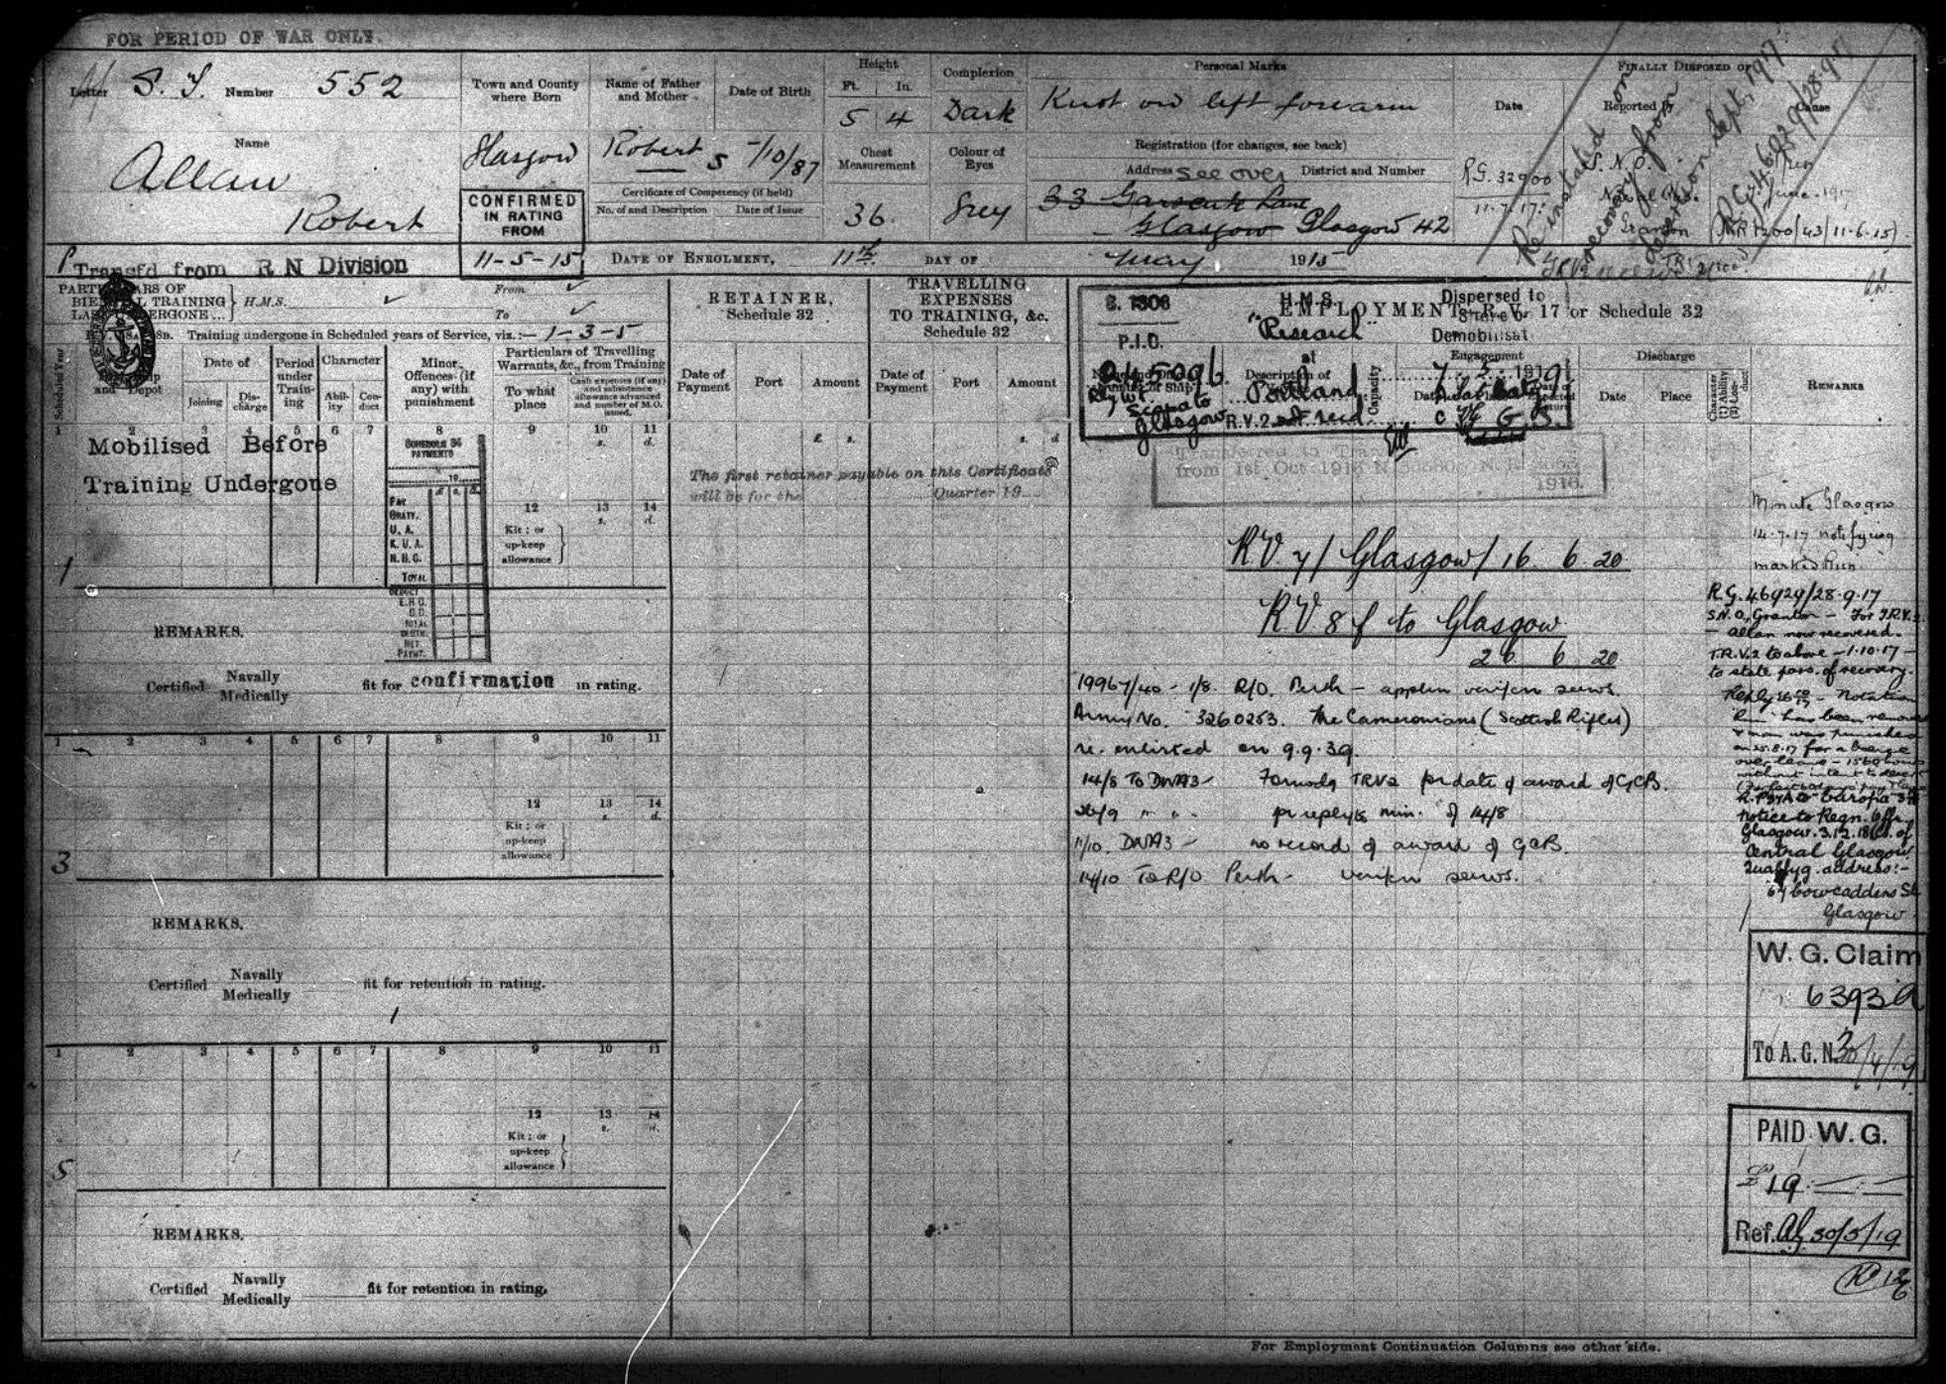 FOR PERIOD OF WAR ONLY.
Letter S. Y. Number 552
Name
Allan
Robert
Town and County where Born
Glasgow
CONFIRMED
IN RATING
FROM
11-5-15
Name of Father and Mother
Robert
S
Date of Birth
-/10/87
Certificate of Competency (if held)
No. of and Description Date of Issue
Height
Ft. In.
5 4
Chest Measurement
36
Complexion
Dark
Colour of Eyes
Grey
Personal Marks
Knot on left forearm
Registration (for changes, see back)
Address see over District and Number
33 Lane
Glasgow Glasgow 42
FINALLY DISPOSED OF
Date Reported by Cause
R.G. 32900 S. N. O. Run
11-7-17 Granton 1200/43/11-6-15)
Re instated on
recovery from
desertion Sept, 1917
R.G. 46929/28.9.17
Transfd from R N Division
DATE OF ENROLMENT, 11th DAY OF May 1915
PARTICULARS OF
BIENNIAL TRAINING
LAST UNDERGONE...
H.M.S. ✓ From ✓
To ✓
Training undergone in Scheduled years of Service, viz.:— 1-3-5
Scheduled Year
Date of
Joining Discharge
Period under Training
Character
Ability Conduct
Minor Offences (if any) with punishment
Particulars of Travelling Warrants, &c., from Training
To what place
Cash expenses (if any) and subsistence allowance advanced and number of M.O. issued.
1 2 3 4 5 6 7 8 9 10 11
Mobilised Before
Training Undergone
SCHEDULE 36
PAYMENTS
GRATY.
U. A.
K. U. A.
N. H. C.
TOTAL
12 13 14
Kit: or up-keep allowance
1
REMARKS.
Certified Navally Medically fit for confirmation in rating.
1 2 3 4 5 6 7 8 9 10 11
12 13 14
Kit: or up-keep allowance
3
REMARKS.
Certified Navally Medically fit for retention in rating.
1 2 3 4 5 6 7 8 9 10 11
12 13 14
Kit: or up-keep allowance
5
REMARKS.
Certified Navally Medically fit for retention in rating.
RETAINER,
Schedule 32
Date of Payment Port Amount
TRAVELLING EXPENSES TO TRAINING, &c.
Schedule 32
Date of Payment Port Amount
The first retainer payable on this Certificate
will be for the Quarter 19
EMPLOYMENT R.V. 17 or Schedule 32
S. 1306
P.I.D.
H.M.S.
"Research"
at
Portland
Dispersed to
Demobilisat
7.5.1919
Glasgow R.V.2
Engagement
Discharge
Date Place
REMARKS
from 1st Oct 1916
R.V. 7/ Glasgow/ 16. 6. 20
R.V 8 f to Glasgow
26 6 20
19967/40 - 1/8. R/O. Perth - applen verifcn servs.
Army No. 3260253. The Cameronians (Scottish Rifles)
re. enlisted on 9.9.39.
14/8 To DNA3 - Formody TRV2 prdate of award of GCB.
26/9 " " . pr reply to min. of 14/8
11/10. DNA3 - no record of award of GCB.
14/10 To R/O Perth - verifcn servs.
Minute Glasgow
14.7.17 notifying
marked Run.
R.G. 46929/28.9.17
S.N.O. Granton - For T.R.V.2
- Allan now recovered.
T.R.V.2 to above - 1.10.17 -
to state pars. of recovery.
Reply - Notation
"Run" has been removed
& man was punished
on 25.8.17 for
over leave - 1560 hours
without intent to desert
to Europa
notice to Regn. Offr.
Glasgow. 3.12.18
Central Glasgow
Qualfyg. address:-
67 Cowcaddens St
Glasgow
W. G. Claim
6393 a
To A. G. N. 30/4/19
PAID W. G.
£19 : — : —
Ref. 30/5/19
For Employment Continuation Columns see other side.